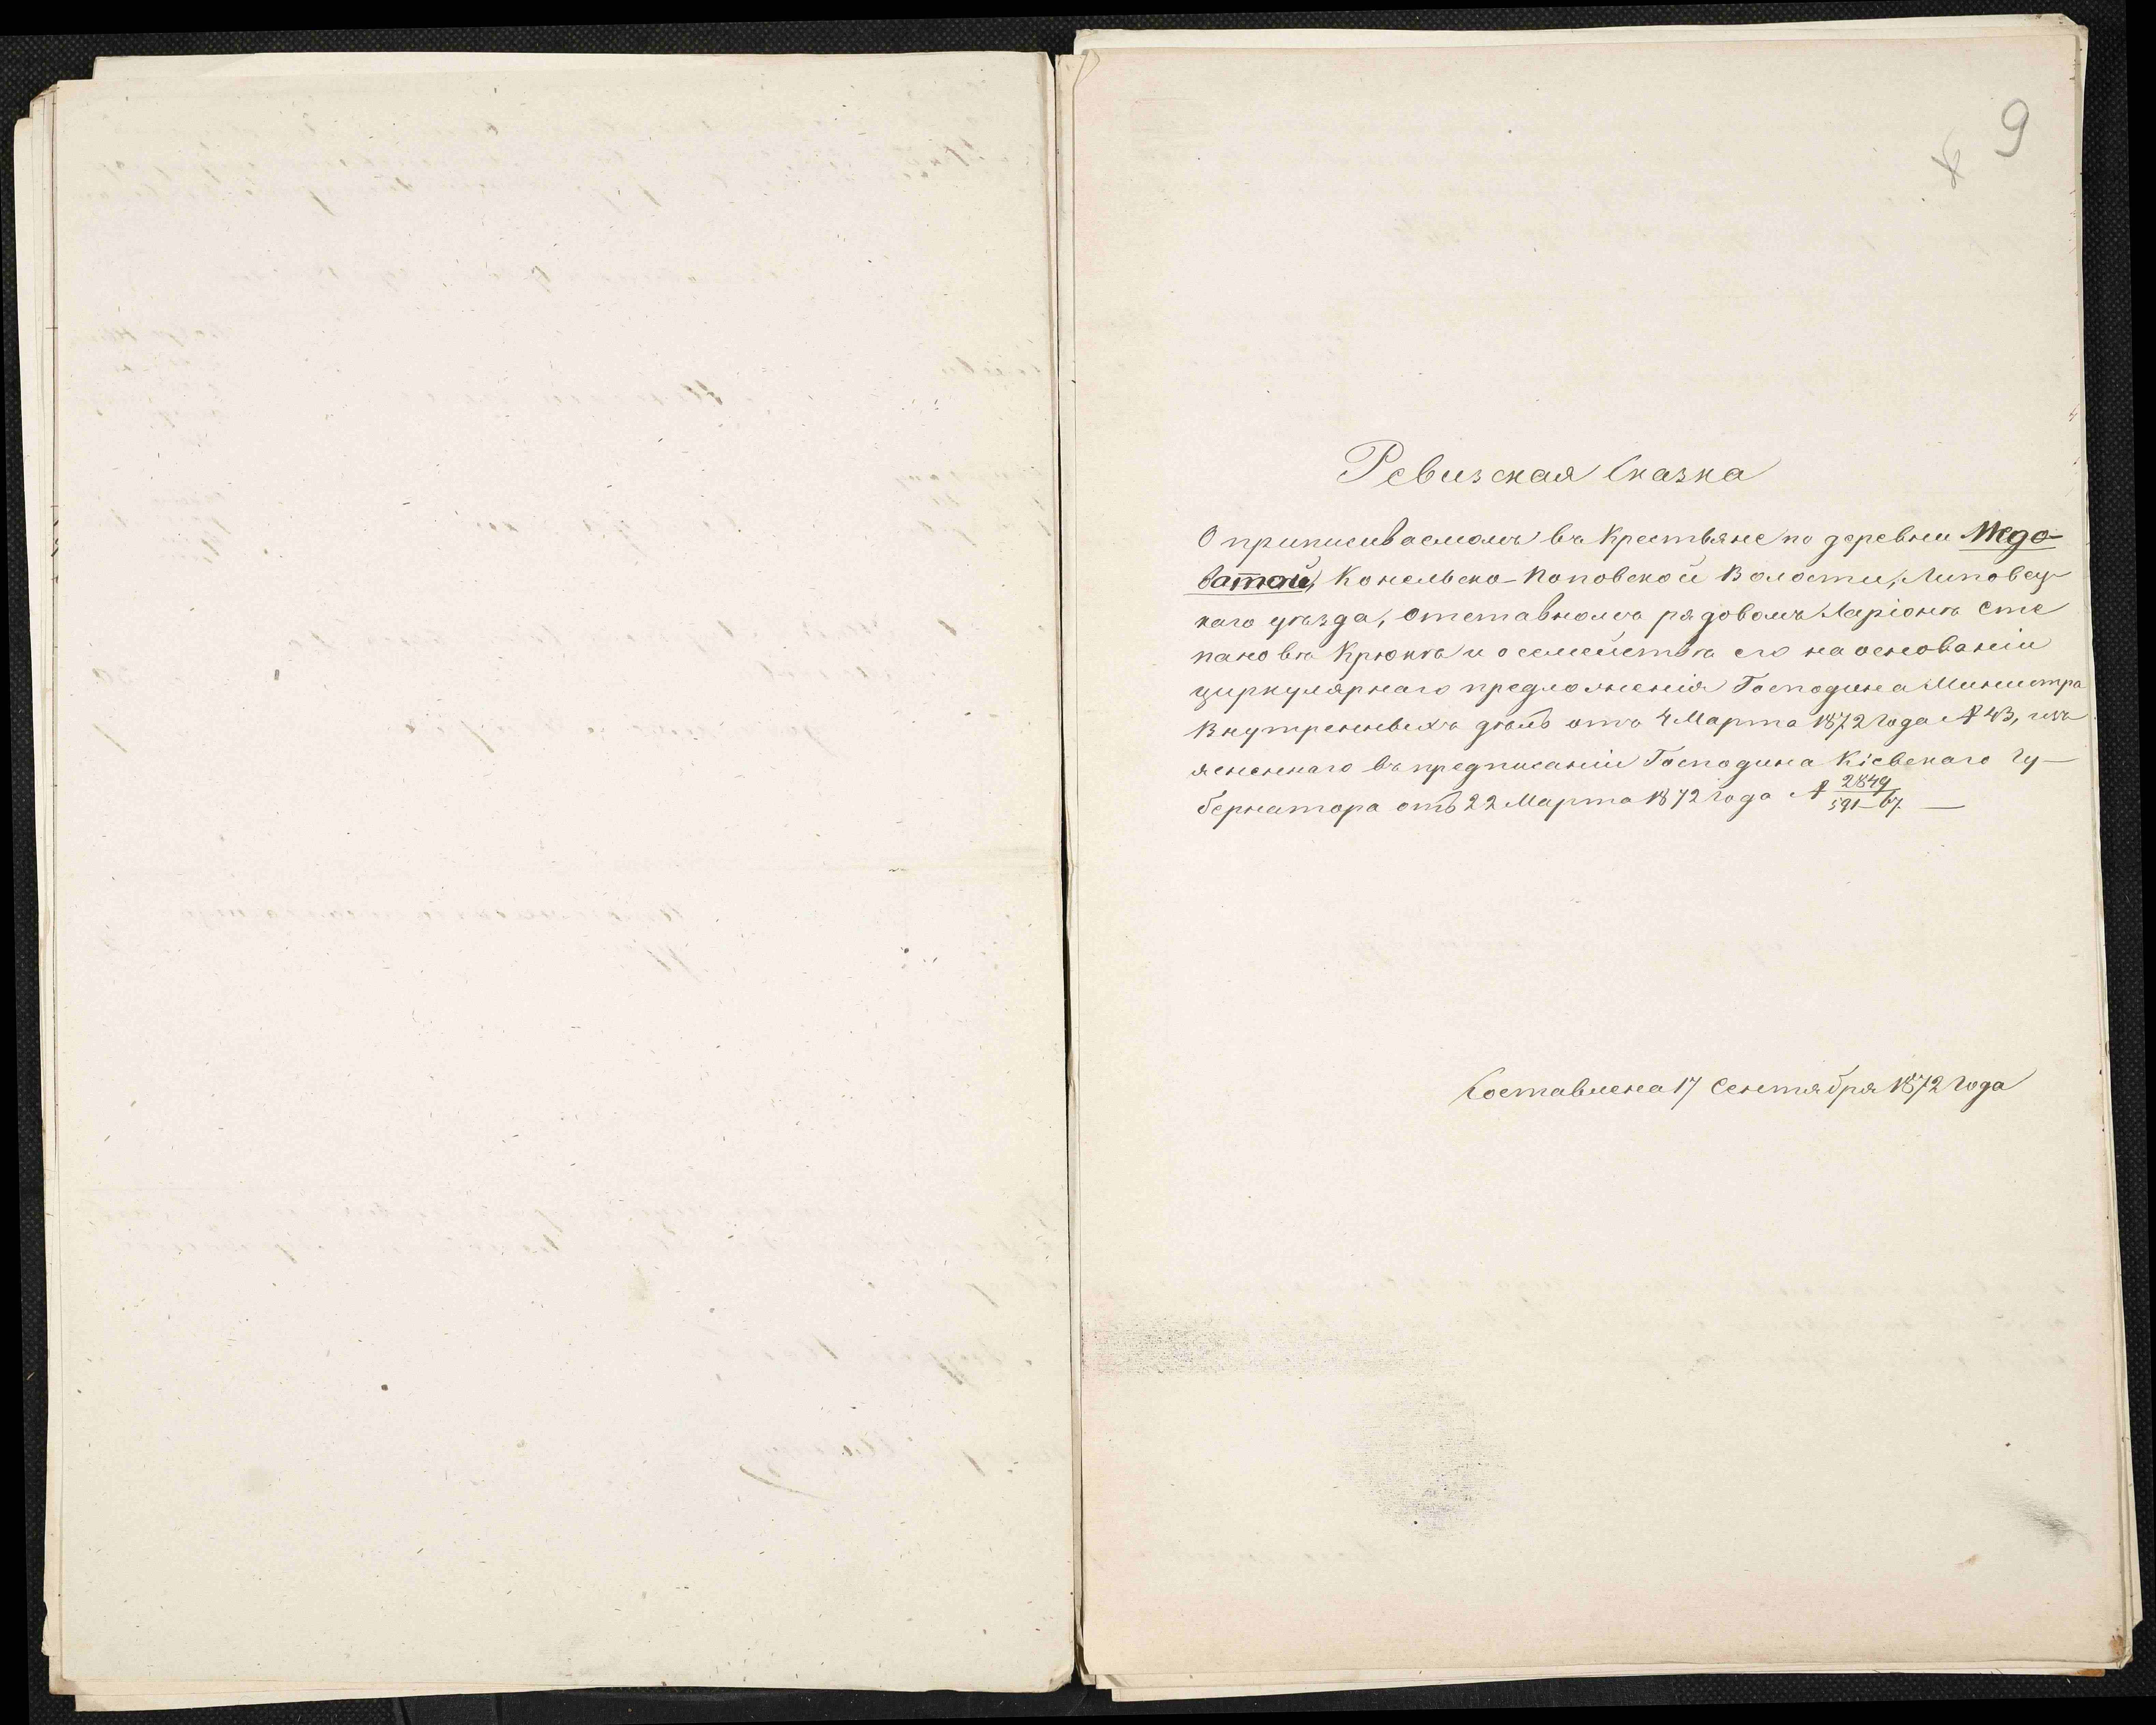 9
Ревизская Сказка
О приписиваемомъ въ Крестьяне по деревни Медо-
ватой, Конельско-Поповской Волости, Липовец-
каго уѣзда, отставномъ рядовомъ Ларіонѣ Сте
пановѣ Крюкѣ и о семействѣ его на основаніи
циркулярнаго предложенія Господина Министра
Внутреннехъ дѣлъ отъ 4 Марта 1872 года № 43, изъ
ясненнаго въ предписаніи Господина Кіевскаго Гу-
бернатора отъ 22 Марта 1872 года № 2849/591-67. —
Составлена 17 Сентября 1872 года